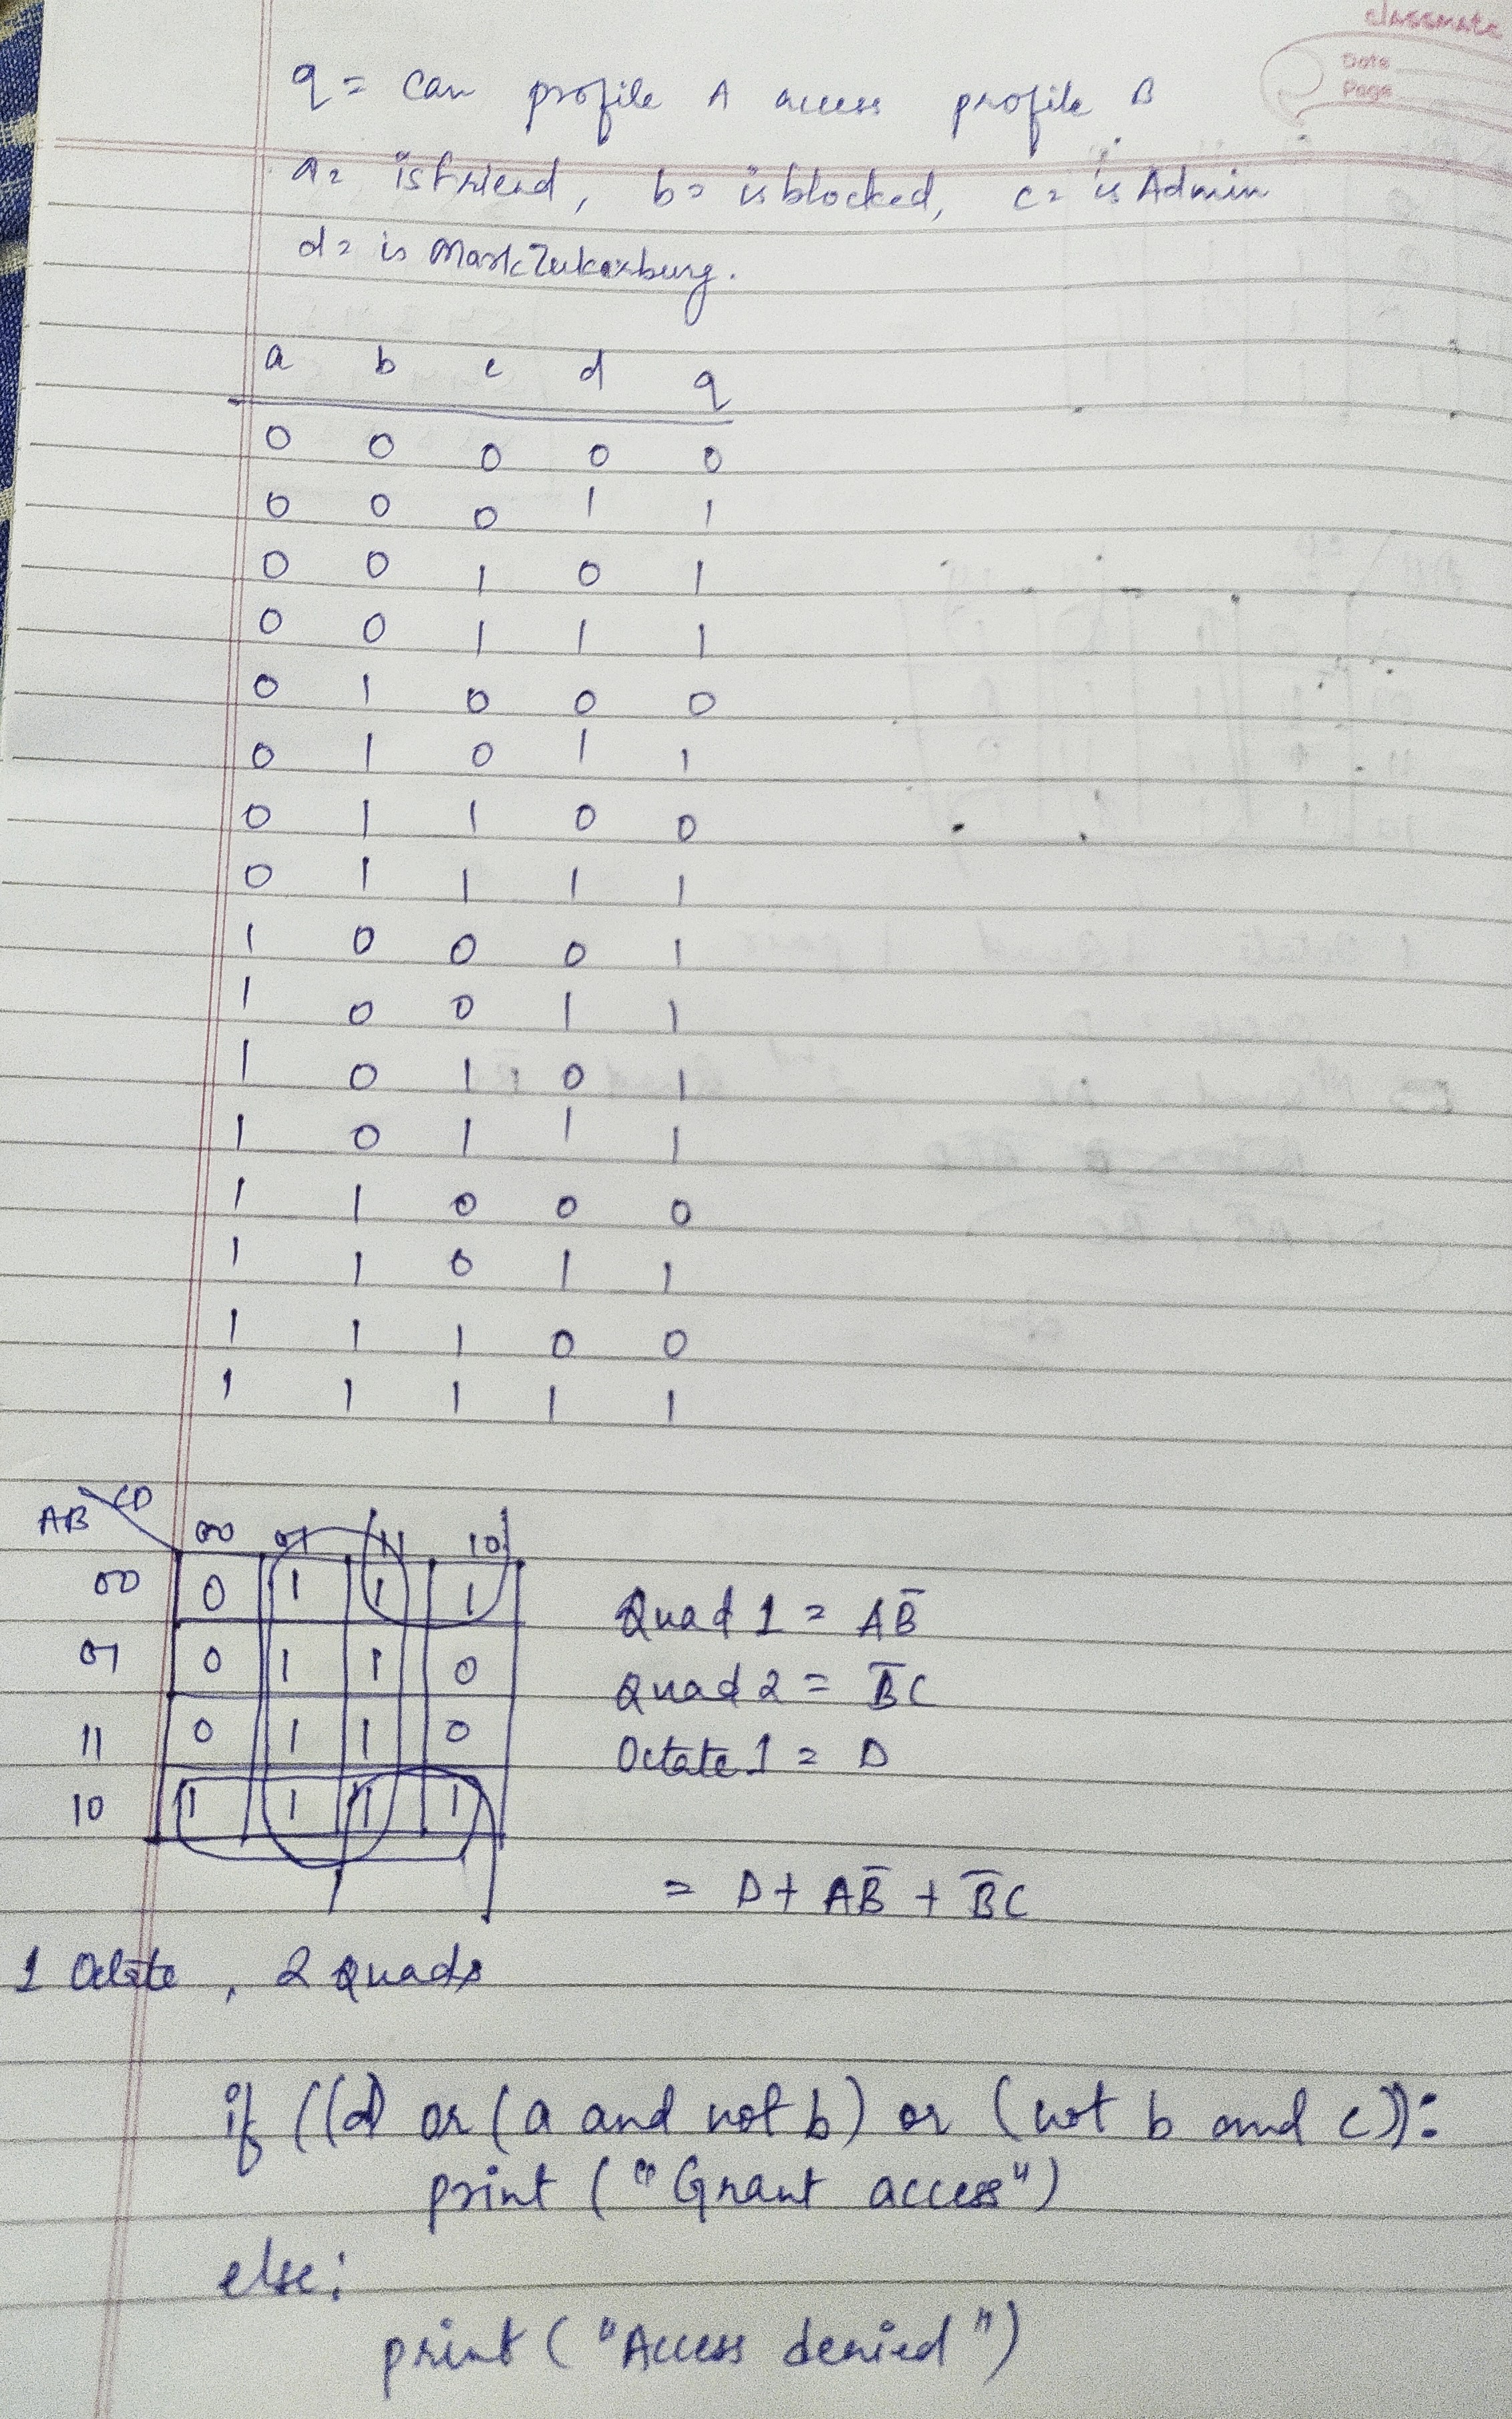 classmate
Date
Page
q = Can profile A access profile B
a = isfriend, b = is blocked, c = is Admin
d = is MarkZukerburg.
a b c d q
0 0 0 0 0
0 0 0 1 1
0 0 1 0 1
0 0 1 1 1
0 1 0 0 0
0 1 0 1 1
0 1 1 0 0
0 1 1 1 1
1 0 0 0 1
1 0 0 1 1
1 0 1 0 1
1 0 1 1 1
1 1 0 0 0
1 1 0 1 1
1 1 1 0 0
1 1 1 1 1
AB CD
00 01 11 10
00 0 1 1 1
01 0 1 1 0
11 0 1 1 0
10 1 1 1 1
Quad 1 = AB̅
Quad 2 = B̅C
Octate 1 = D
= D + AB̅ + B̅C
1 Octate, 2 Quads
if ((d) or (a and not b) or (not b and c)):
print ("Grant access")
else:
print ("Access denied")